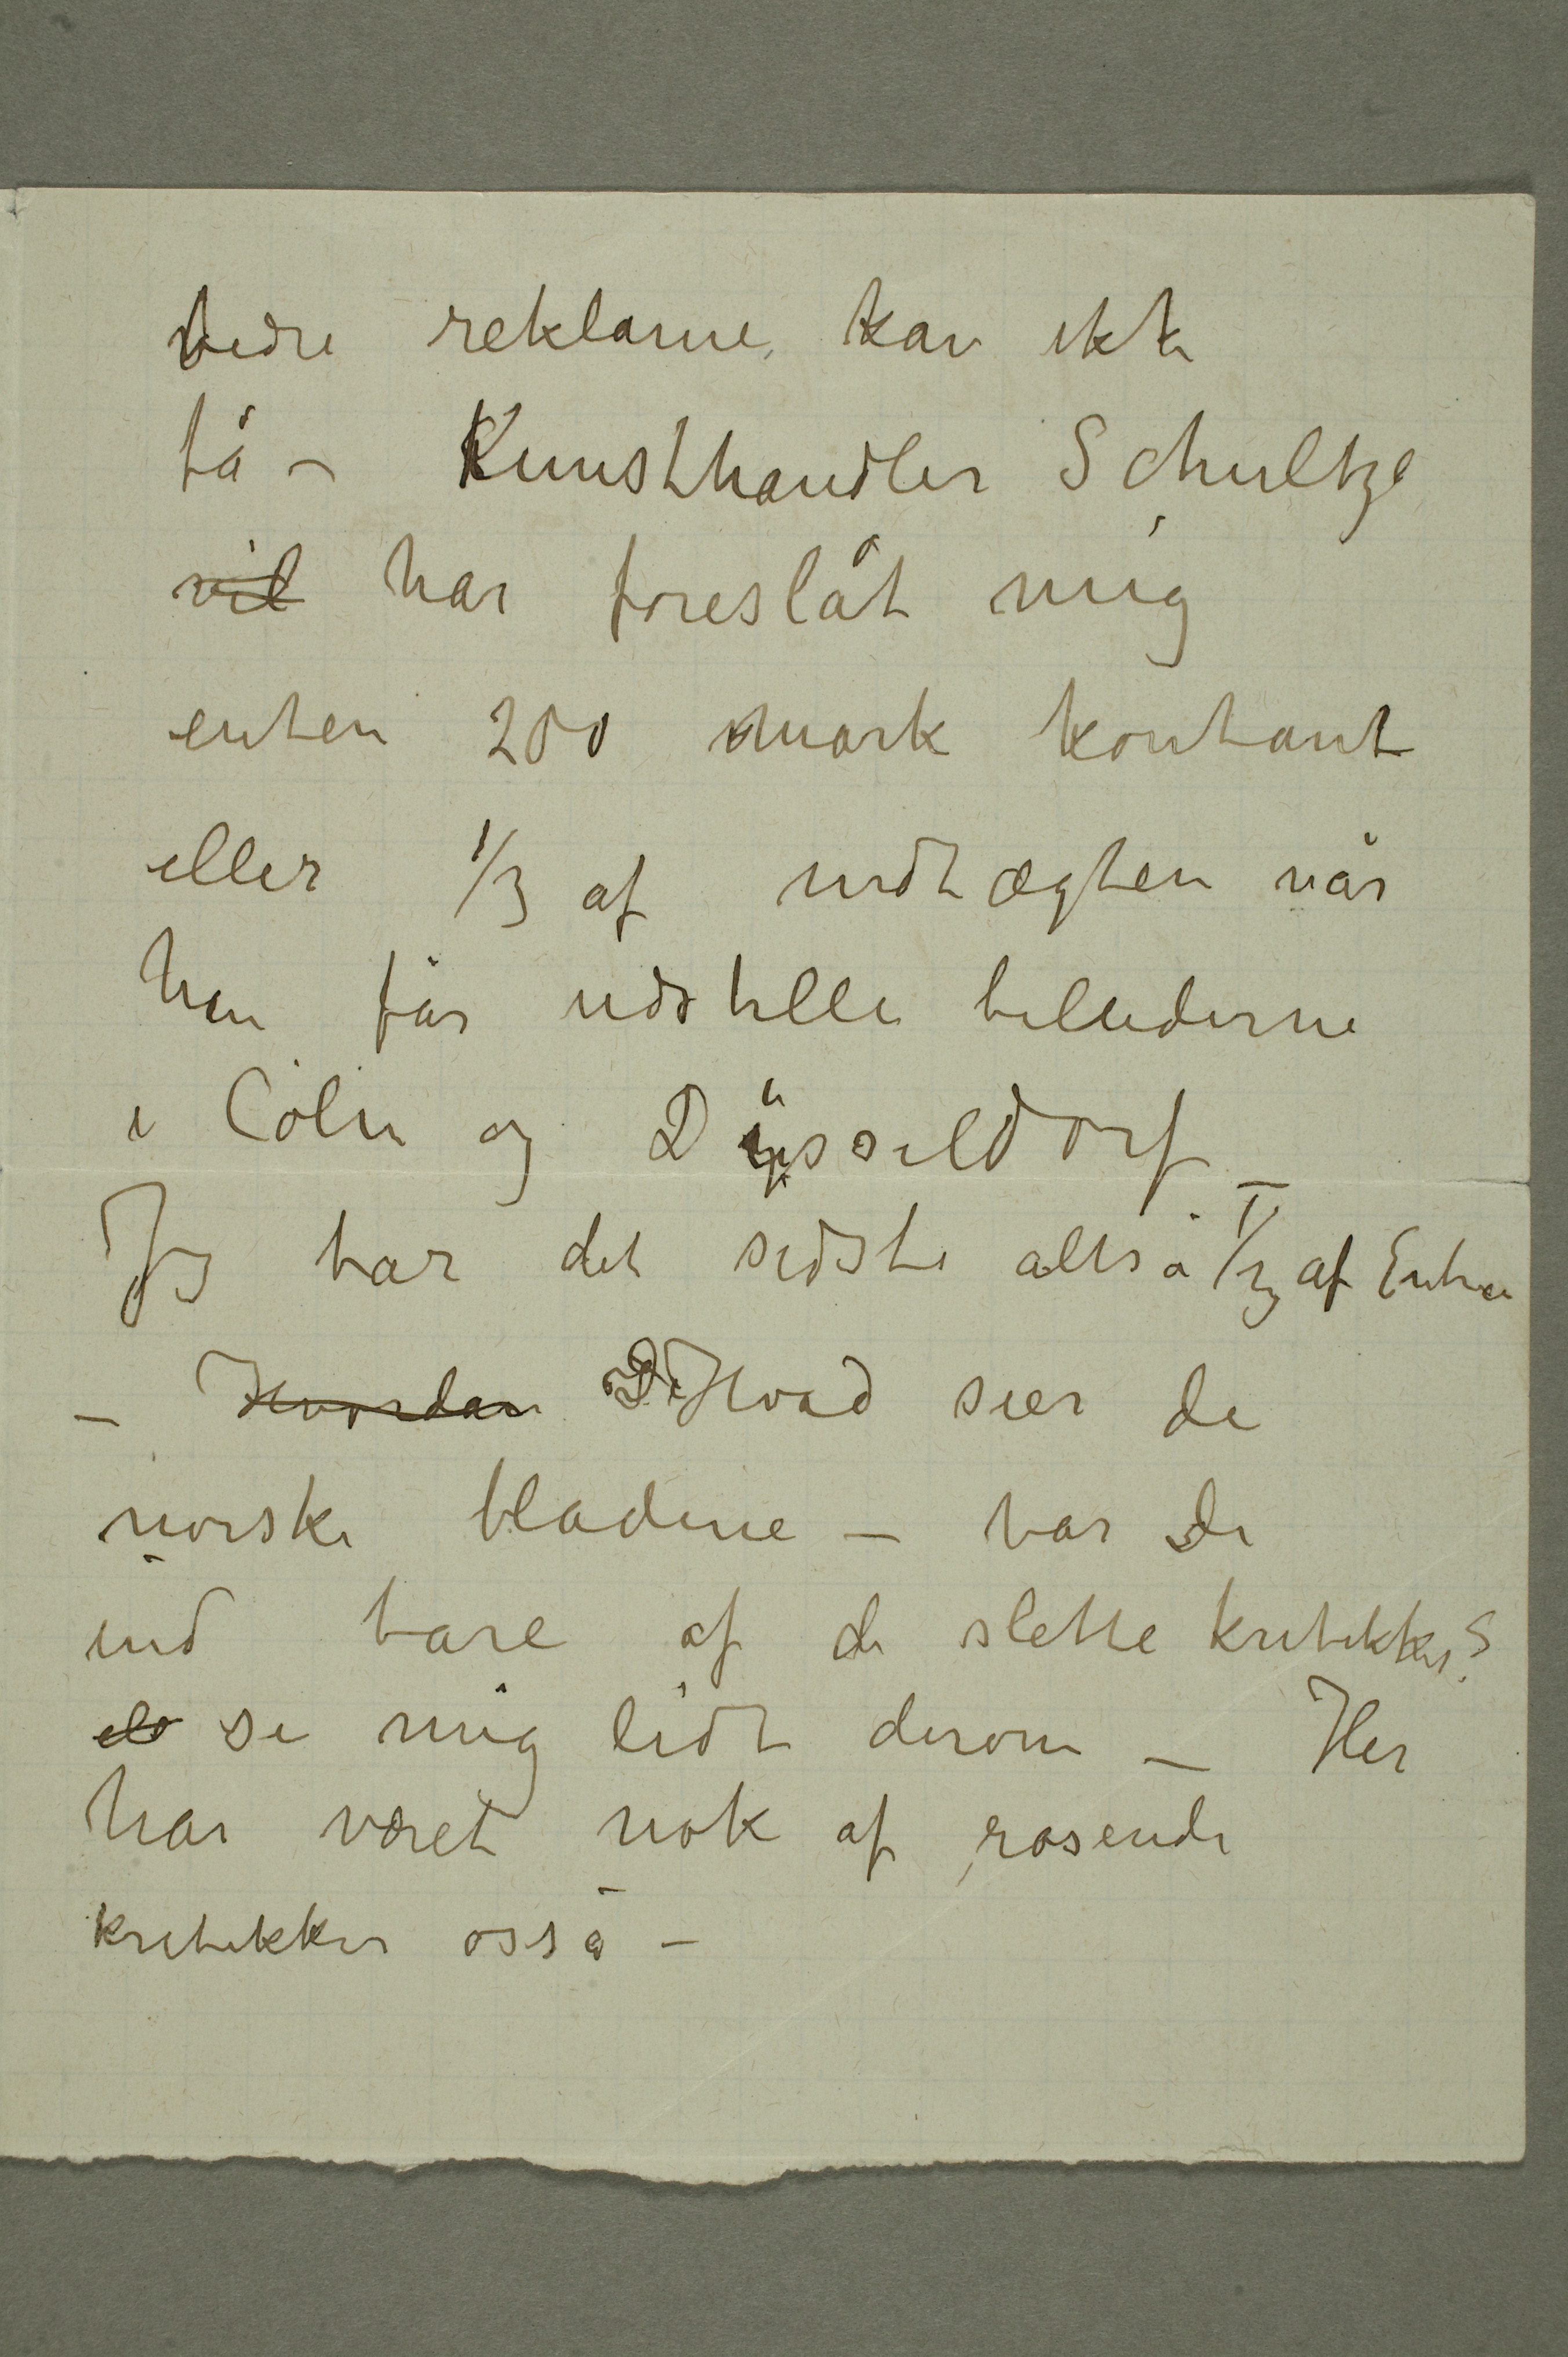 bedre reklame kan ikke
få – Kunsthandler Schultze
vil har foreslåt mig
enten 200 mark kontant
eller 1/3 af indtægten når
han får udstille billederne
i Cöln og Düsseldorf –
Jeg tar det sidste altså 1/3 af Entre
– Hvordan De Hvad sier de
norske bladene – tar de
ind bare af de slette kritikker?
se mig lidt derom – Her
har været nok af rosende
kritikker osså –